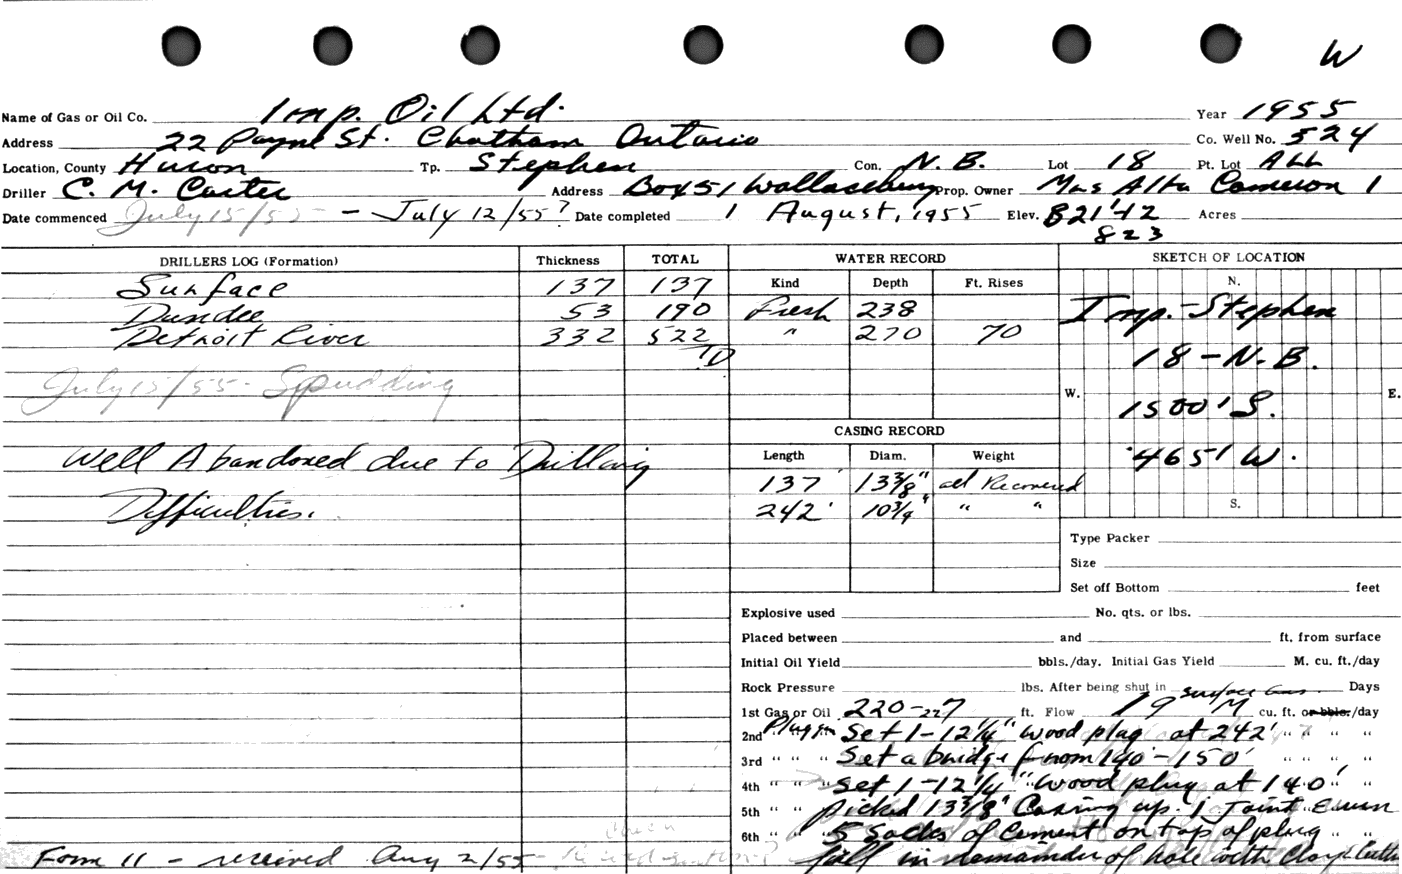 W
Name of Gas or Oil Co. Imp. Oil Ltd. Year 1955
Address 22 Payne St. Chatham Ontario Co. Well No. 524
Location, County Huron Tp. Stephen Con. N. B. Lot 18 Pt. Lot ALL
Driller C. M. Carter Address Box 51 Wallaceburg Prop. Owner Mrs Alta Cameron 1
Date commenced July 15/55 - July 12/55? Date completed 1 August, 1955 Elev. 821'+2 Acres
823
DRILLERS LOG (Formation) Thickness TOTAL WATER RECORD SKETCH OF LOCATION
Kind Depth Ft. Rises N.
Surface 137 137
Dundee 53 190 Fresh 238 Imp.-Stephen
Detroit River 332 522 " 270 70
TD 18-N.B.
July 15/55- Spudding
W. E.
1500' S.
CASING RECORD
Well Abandoned due to Drilling Length Diam. Weight 465' W.
137' 13 3/8" all Recovered
Difficulties. 242' 10 3/4" " " S.
Type Packer
Size
Set off Bottom feet
Explosive used No. qts. or lbs.
Placed between and ft. from surface
Initial Oil Yield bbls./day. Initial Gas Yield M. cu. ft./day
Rock Pressure lbs. After being shut in surface Gas Days
1st Gas or Oil 220-227 ft. Flow 19 M cu. ft. or bbls./day
2nd " " " Set 1-12 1/4" wood plug at 242' " " " "
3rd " " " Set a bridge from 140'-150' " " " "
4th " " " Set 1-12 1/4" Wood plug at 140' " "
5th " " picked 13 3/8" Casing up. 1 joint
6th " " 5 Sacks of Cement on top of plug " "
Form 11 - received Aug 2/55 fill in remainder of hole with